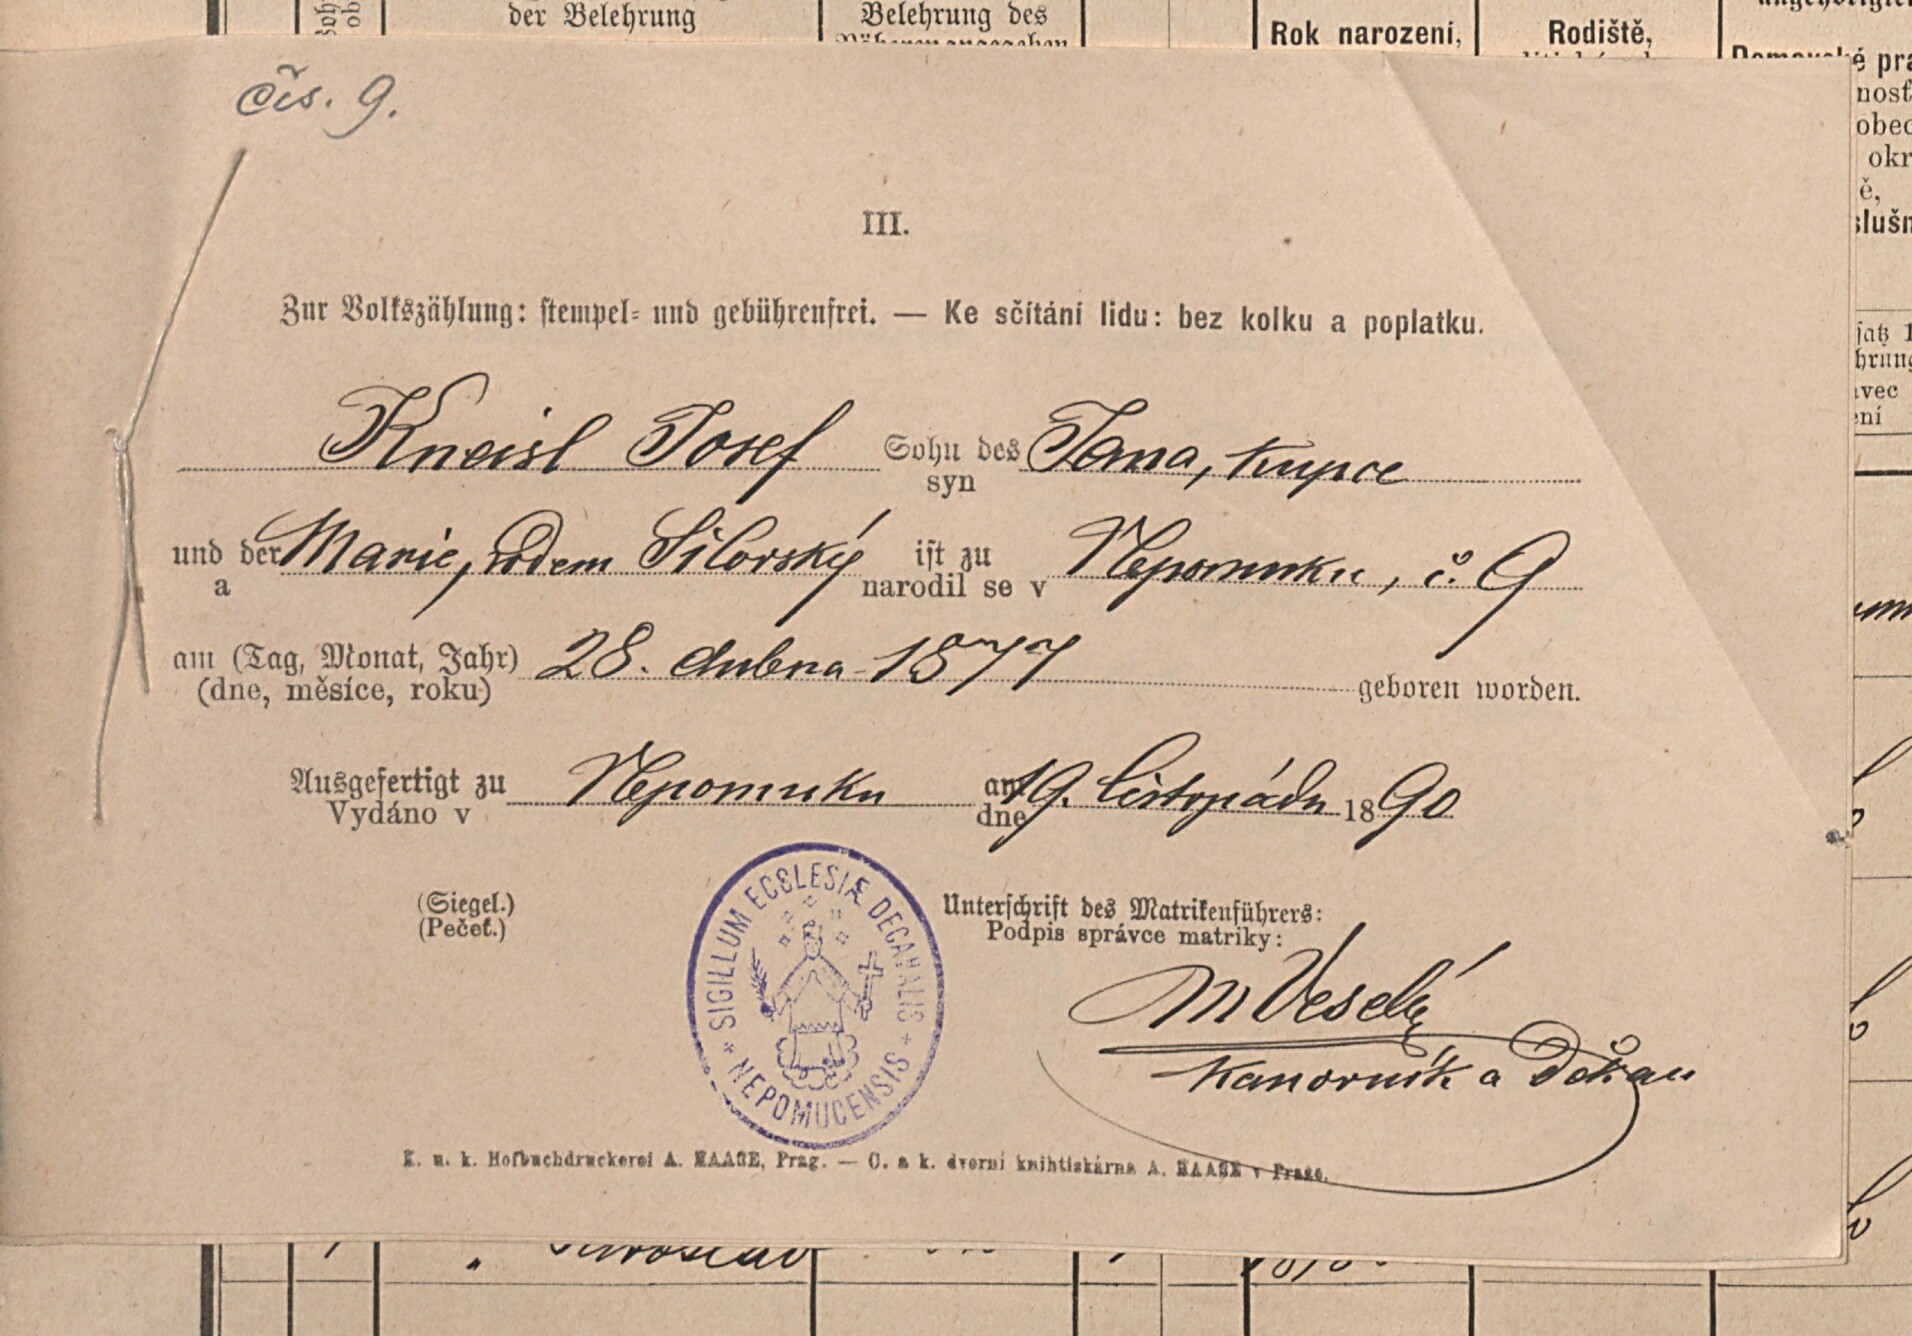 der Belehrung
Belehrung des
Rok narození,
Rodiště,
čís. 9.
III.
Zur Volkszählung: stempel- und gebührenfrei. — Ke sčítání lidu: bez kolku a poplatku.
Kneisl Josef Sohn des Jana, kupce
syn
und der Marie, rodem Silorský ist zu Nepomuku, č. 9
a narodil se v
am (Tag, Monat, Jahr) 28. dubna 1877 geboren worden.
(dne, měsíce, roku)
Ausgefertigt zu Nepomuku am 19. listopádu 1890
Vydáno v dne
(Siegel.) Unterschrift des Matrikenführers:
(Pečeť.) Podpis správce matriky:
SIGILLUM ECCLESIÆ DECANALIS
NEPOMUCENSIS
M Veselý
kanovník a děkan
K. u. k. Hofbuchdruckerei A. HAASE, Prag. — C. a k. dvorní knihtiskárna A. HAASE v Praze.